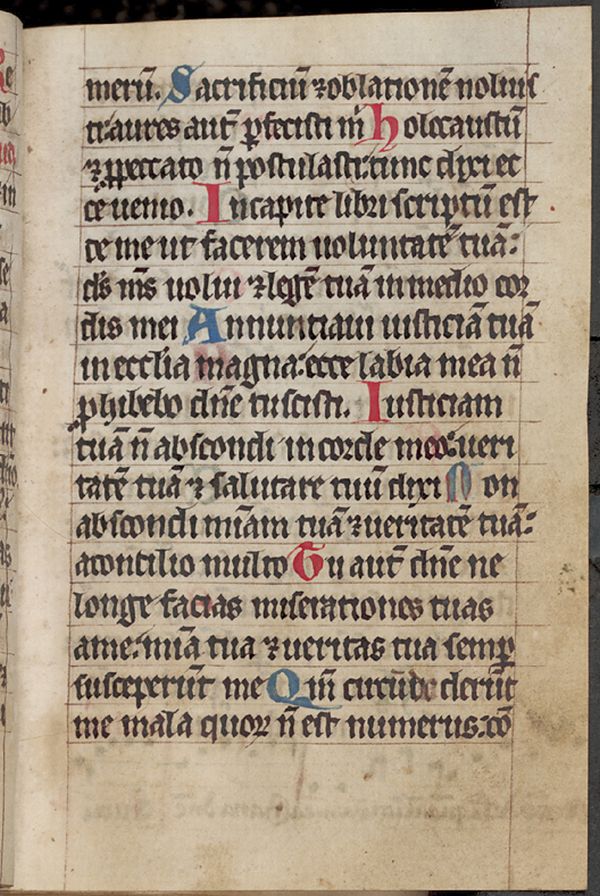 merū. Sacrificiū ⁊ oblationē noluis
ti: aures aut̄ ꝑfecisti m̄ Holocaustū
⁊ ꝓ peccato n̄ postulasti: tunc dixi ec
ce uenio. In capite libri scriptū est
de me ut facerem uoluntatē tuā:
ds̄ ms̄ uolui ⁊ legē tuā in medio cor
dis mei Annunciaui iusticiā tuā
in ecclia magna: ecce labia mea n̄
ꝓhibebo dn̄e tu scisti. Iusticiam
tuā n̄ abscondi in corde meo: ueri
tatē tuā ⁊ salutare tuū dixi Non
abscondi miām tuā ⁊ ueritatē tuā:
a concilio multo Tu aut̄ dn̄e ne
longe facias miserationes tuas
a me: miā tua ⁊ ueritas tua semꝑ
susceperūt me Qm̄ circūdederūt
me mala quoꝝ n̄ est numerus: cō